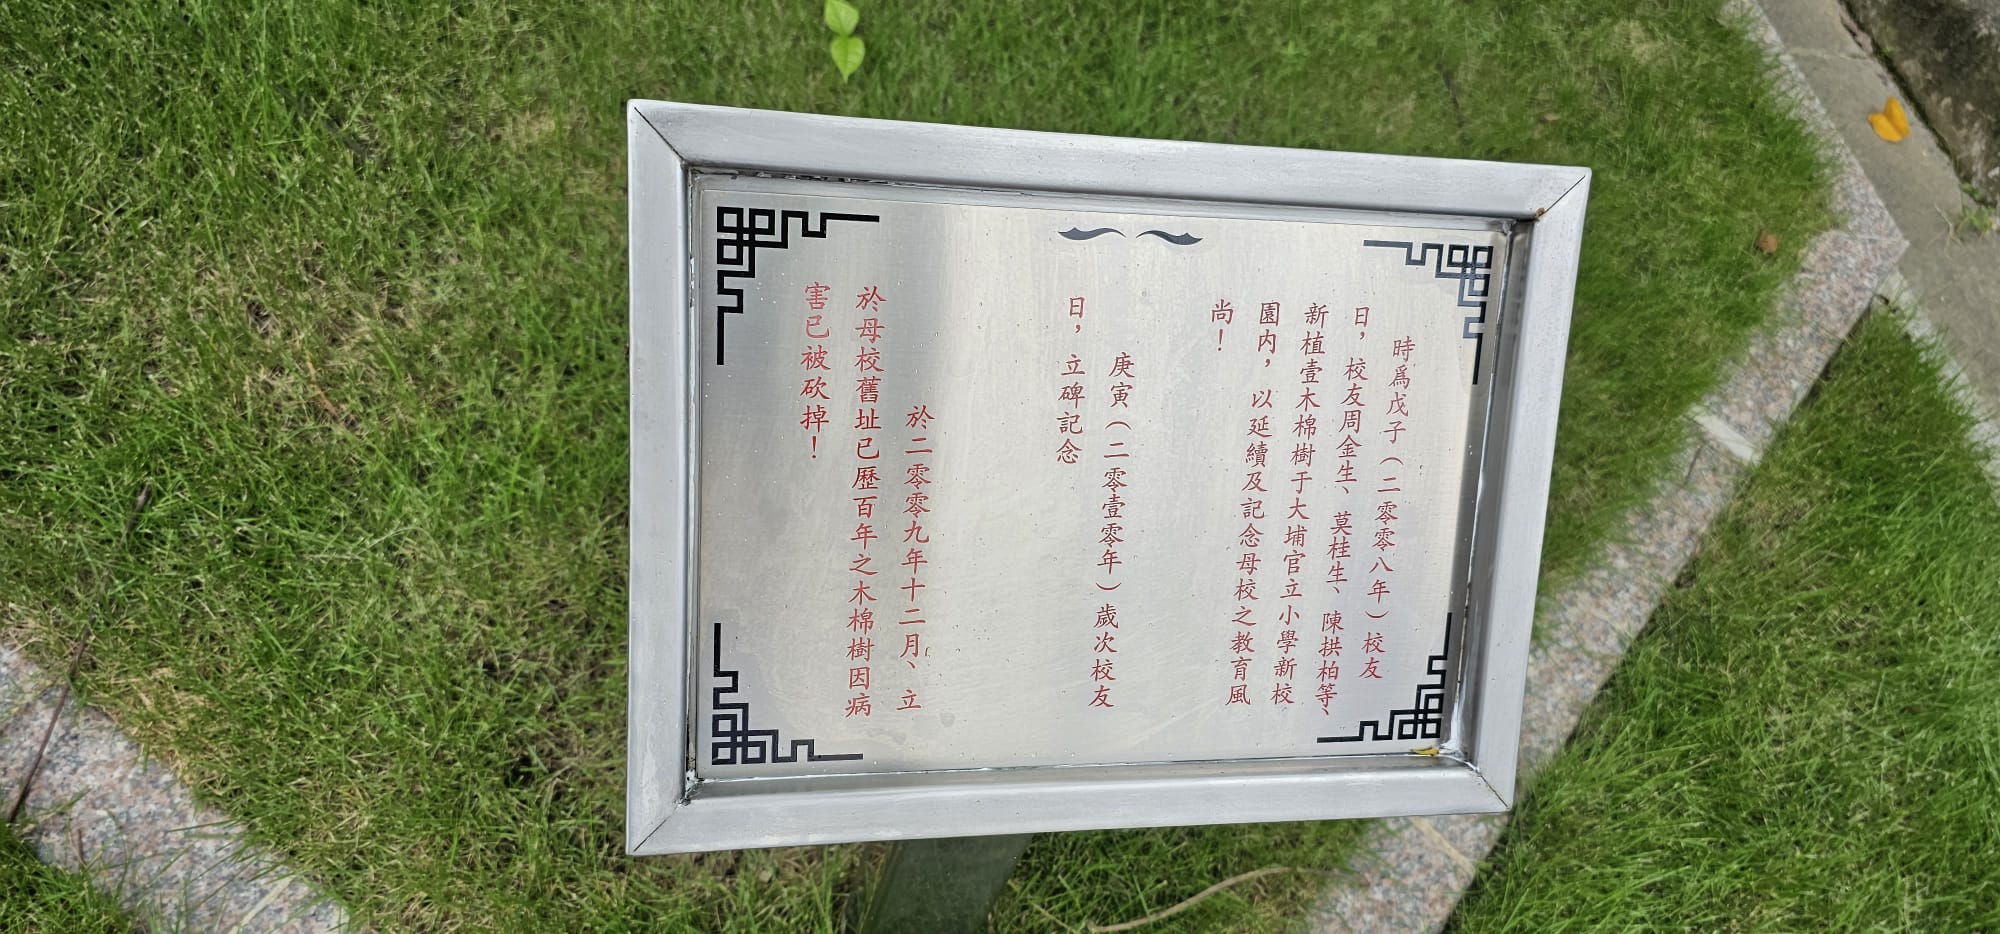 時爲戊子（二零零八年）校友
日，校友周金生、莫桂生、陳拱柏等、
新植壹木棉樹于大埔官立小學新校
園内，以延續及記念母校之教育風
尚！
庚寅（二零壹零年）歲次校友
日，立碑記念
於二零零九年十二月、立
於母校舊址已歷百年之木棉樹因病
害已被砍掉！